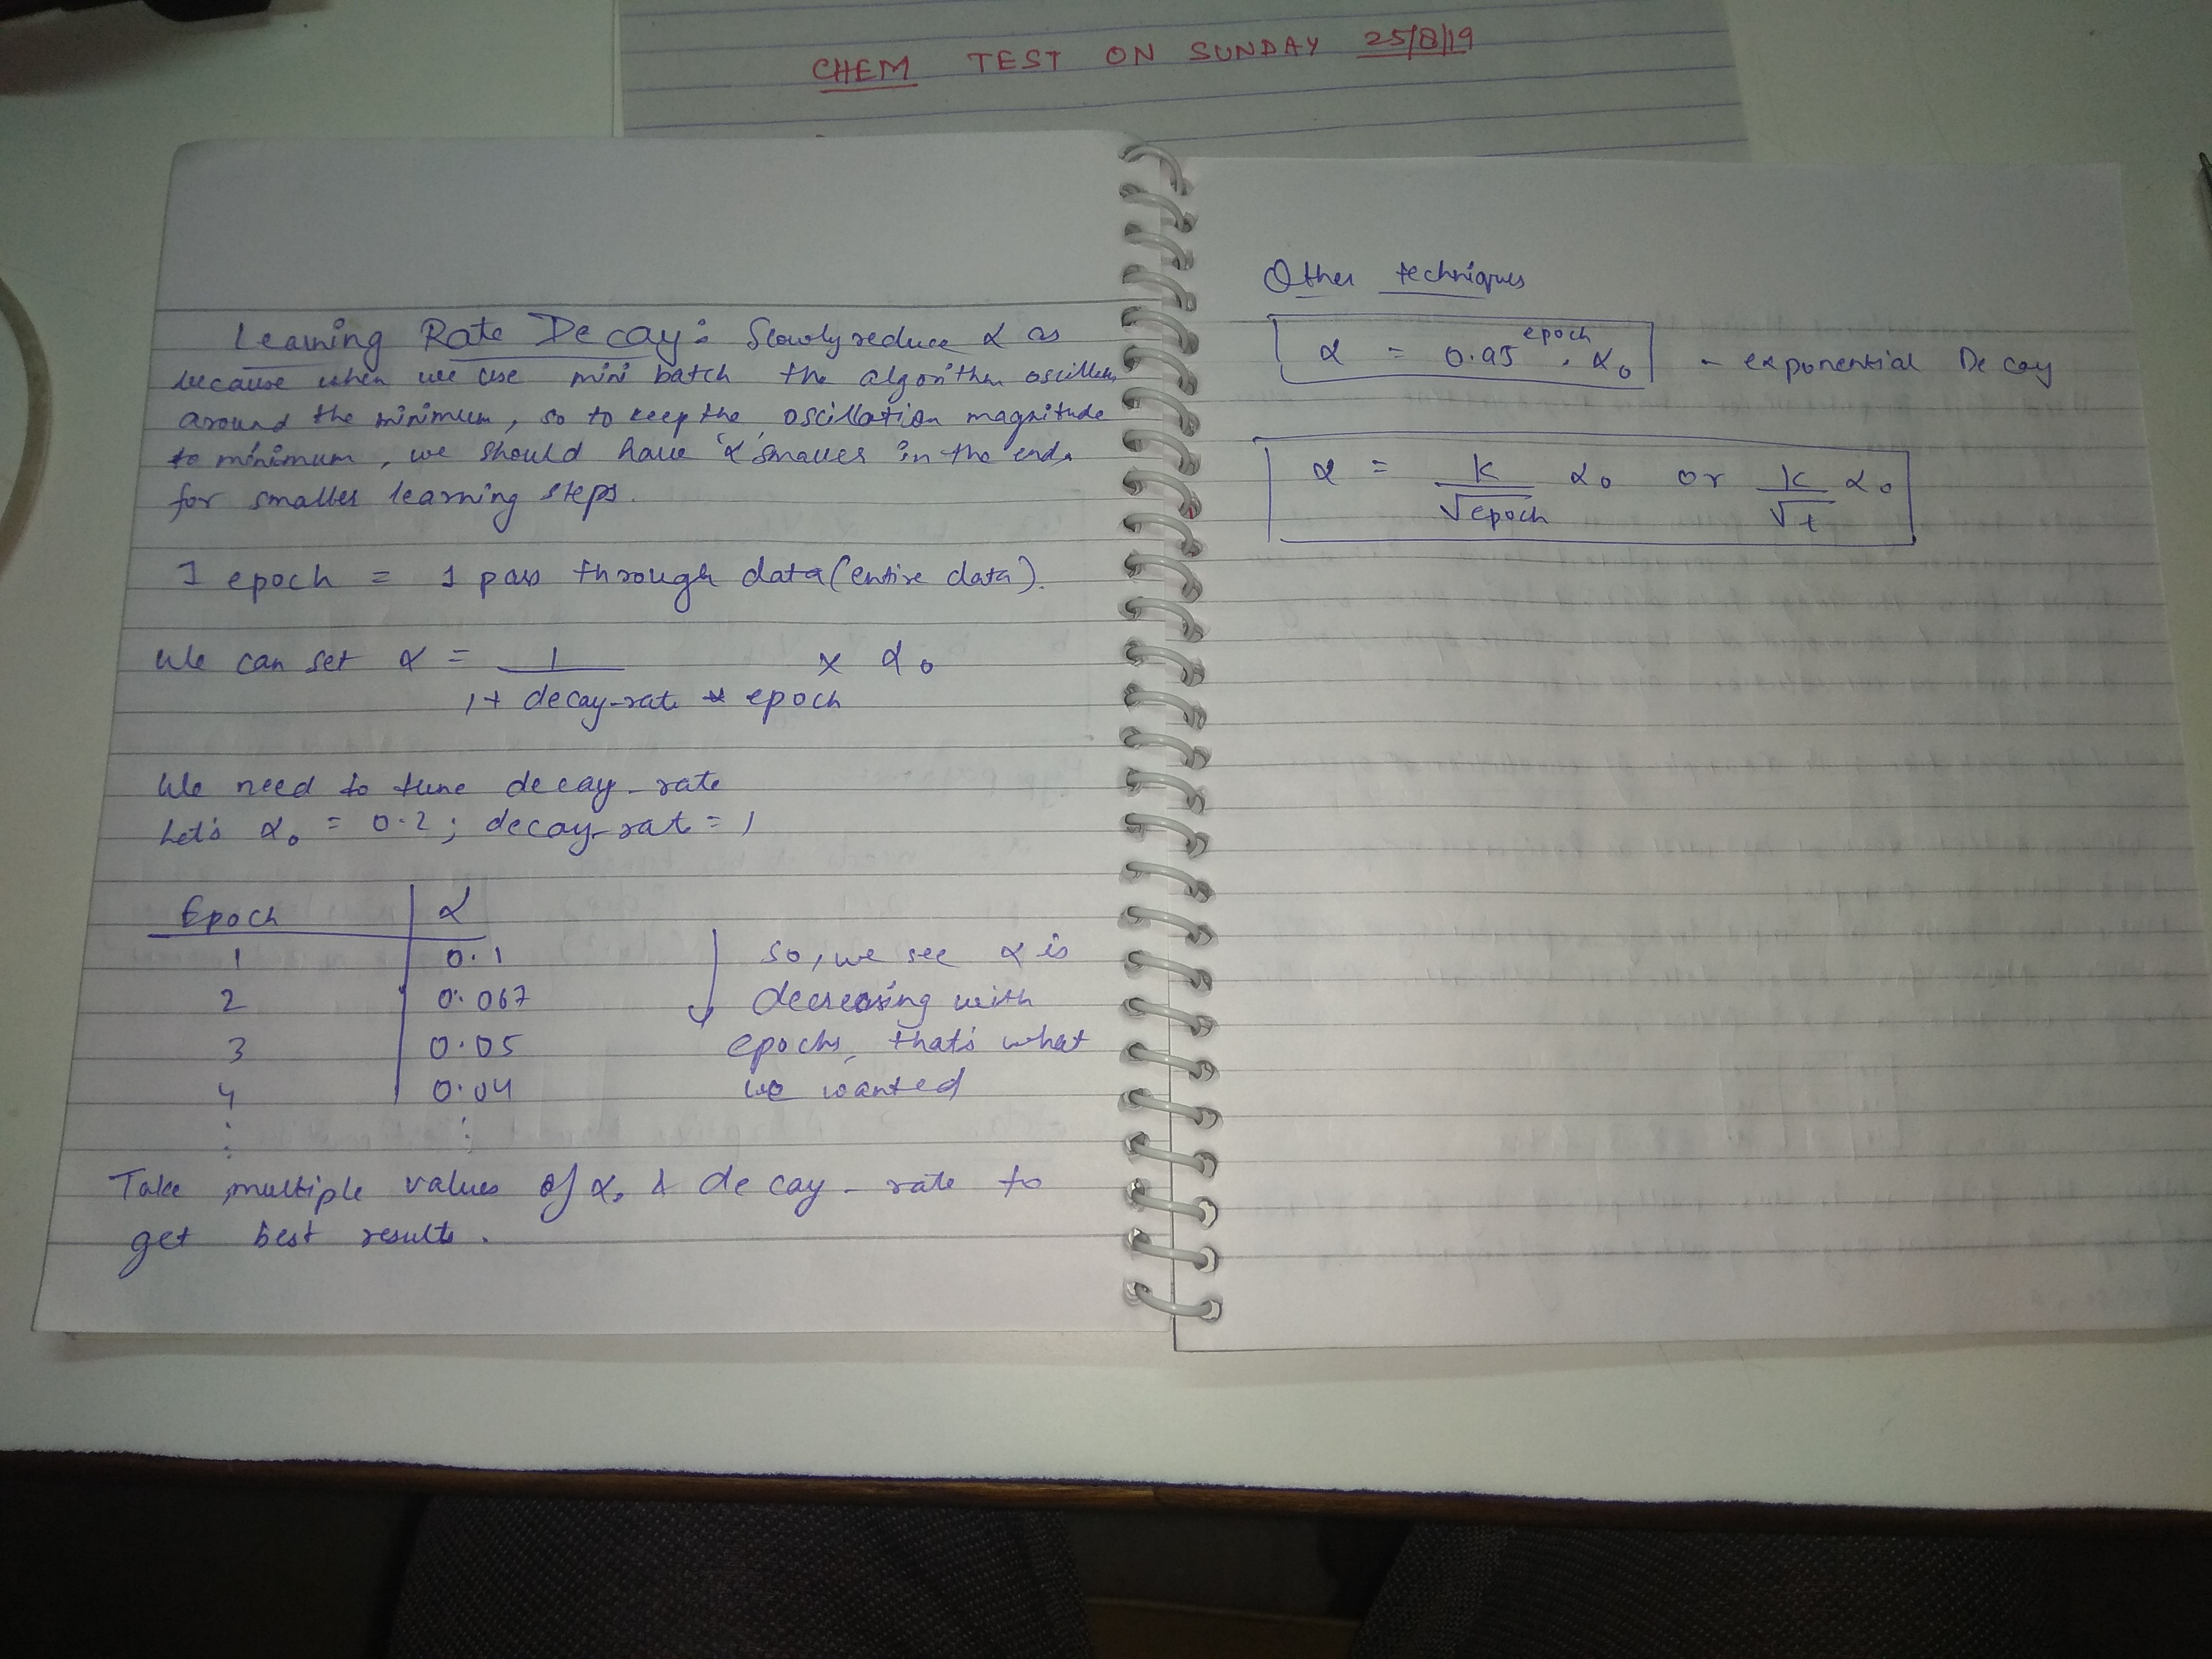 CHEM TEST ON SUNDAY 25/8/19
Learning Rate Decay: Slowly reduce α as
because when we use mini batch the algorithm oscillates
around the minimum, so to keep the oscillation magnitude
to minimum, we should have 'α' smaller in the end,
for smaller learning steps.
1 epoch = 1 pass through data (entire data).
We can set α = 1 / (1 + decay-rate * epoch) × α₀
We need to tune decay-rate
Let's α₀ = 0.2; decay-rate = 1
Epoch | α
1 | 0.1
2 | 0.067
3 | 0.05
4 | 0.04
⋮ ⋮
↓ So, we see α is
decreasing with
epochs, that's what
we wanted
Take multiple values of α₀ & decay-rate to
get best results.
Other techniques
α = 0.95^epoch . α₀ - exponential Decay
α = k/√epoch α₀ or k/√t α₀